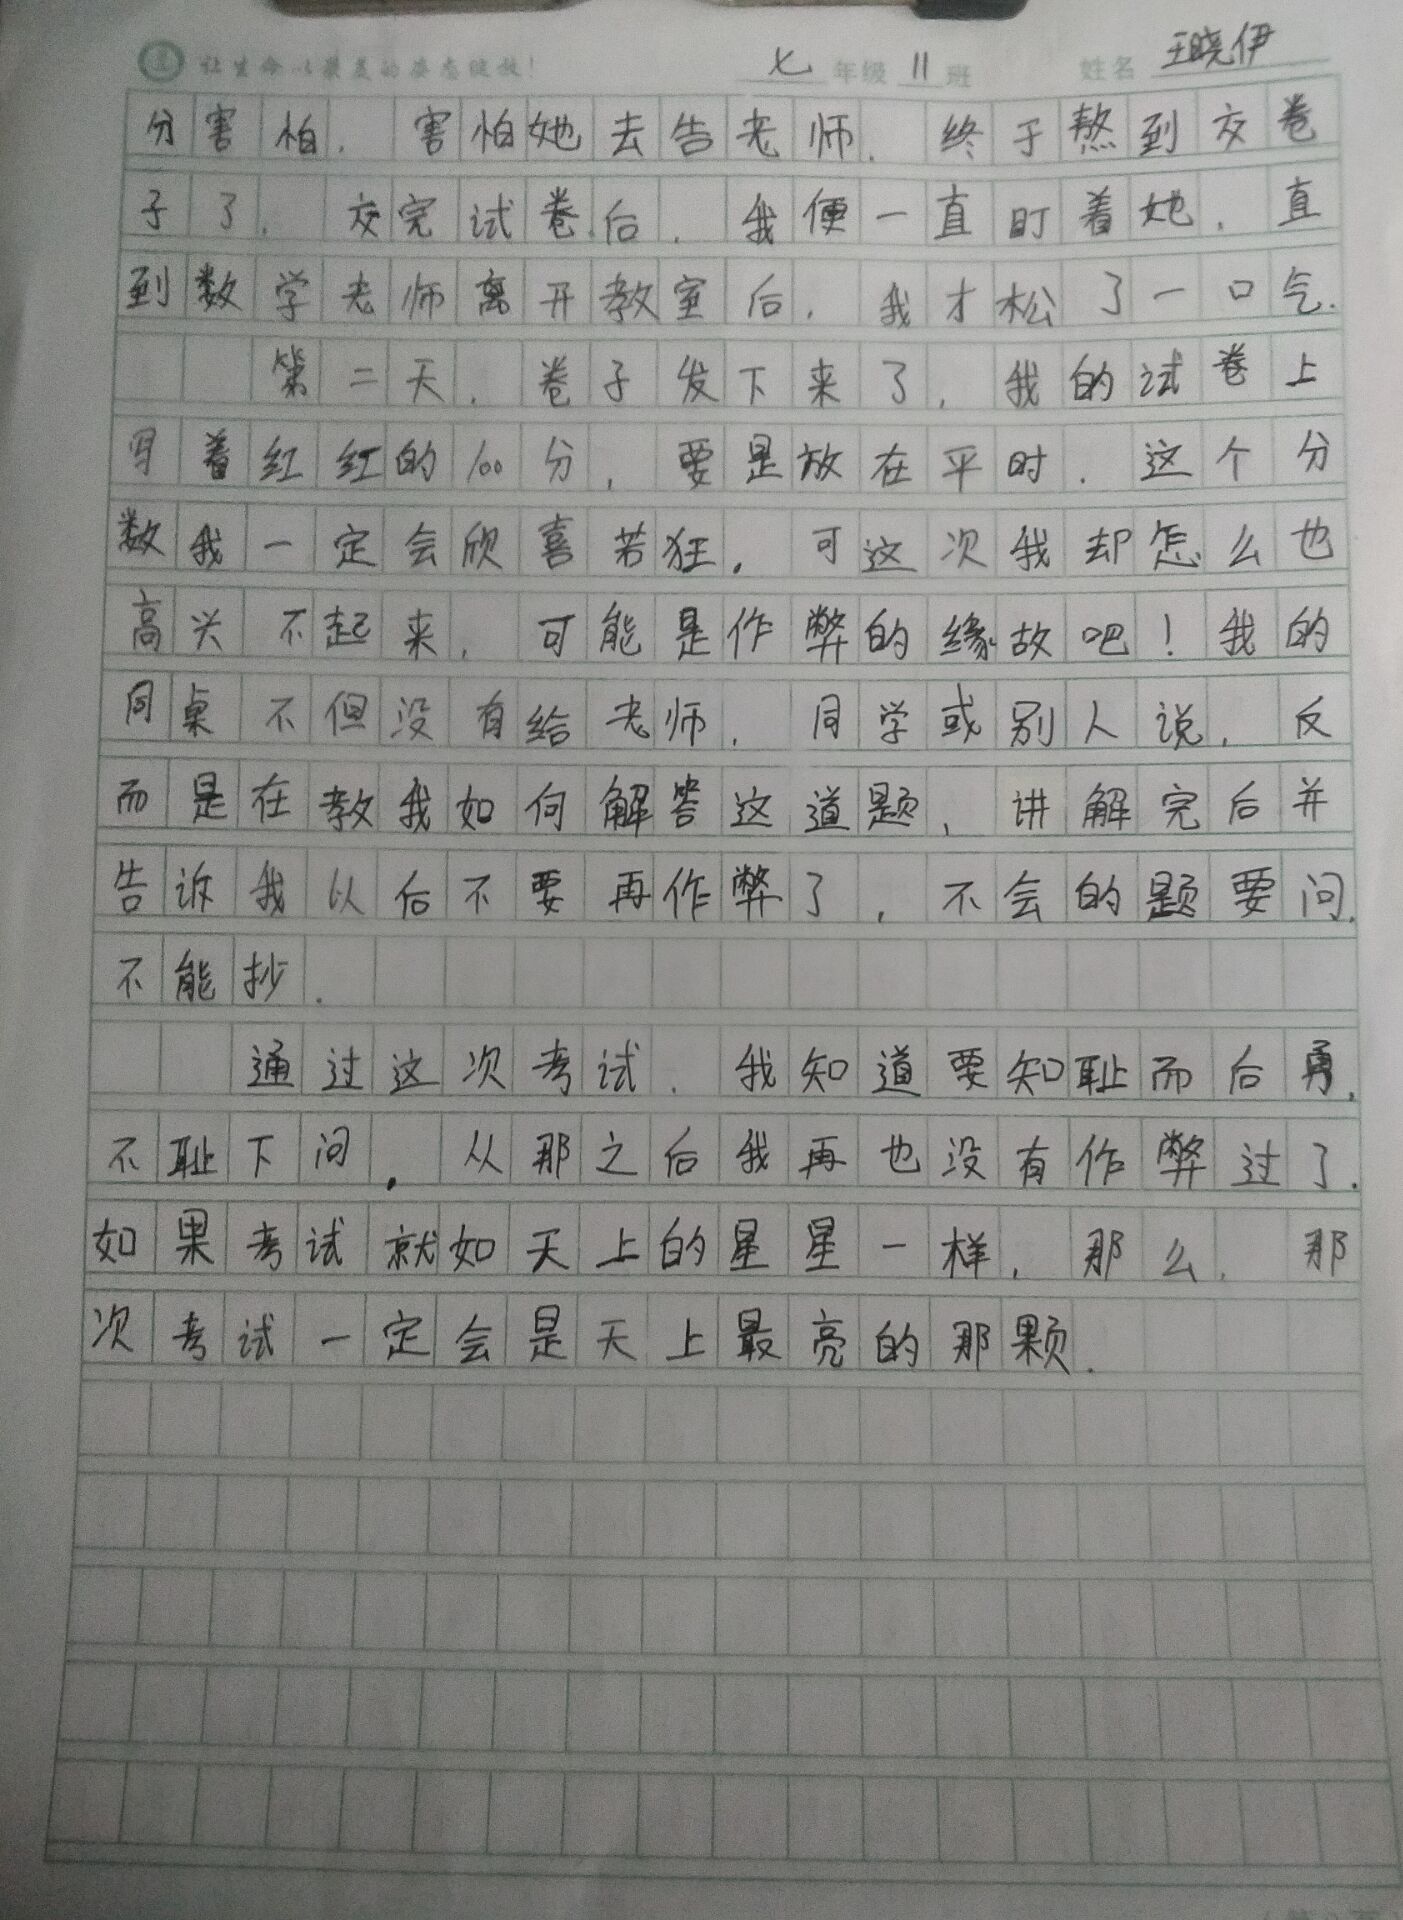 让生命以最美的姿态绽放！ 七 年级 11 班 姓名 王晓伊
分害怕．害怕她去告老师．终于熬到交卷
子了．交完试卷后．我便一直盯着她．直
到数学老师离开教室后．我才松了一口气．
第二天．卷子发下来了，我的试卷上
写着红红的100分，要是放在平时．这个分
数我一定会欣喜若狂．可这次我却怎么也
高兴不起来．可能是作弊的缘故吧！我的
同桌不但没有给老师．同学或别人说．反
而是在教我如何解答这道题，讲解完后并
告诉我以后不要再作弊了，不会的题要问．
不能抄．
通过这次考试．我知道要知耻而后勇．
不耻下问．从那之后我再也没有作弊过了．
如果考试就如天上的星星一样，那么．那
次考试一定会是天上最亮的那颗．